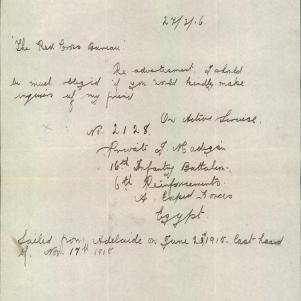 27/2/16.
"The Red Cross Bureau"
Re advertisement I should
be most obliged if you would kindly make
inquiries of my friend
On Active Service.
No. 2128.
Private J. Madigan
16th Infantry Battalion.
6th Reinforcements.
A. Exped Forces
Egypt
Sailed from Adelaide on June 23 1915. Last heard
of. Nov. 17th 1915